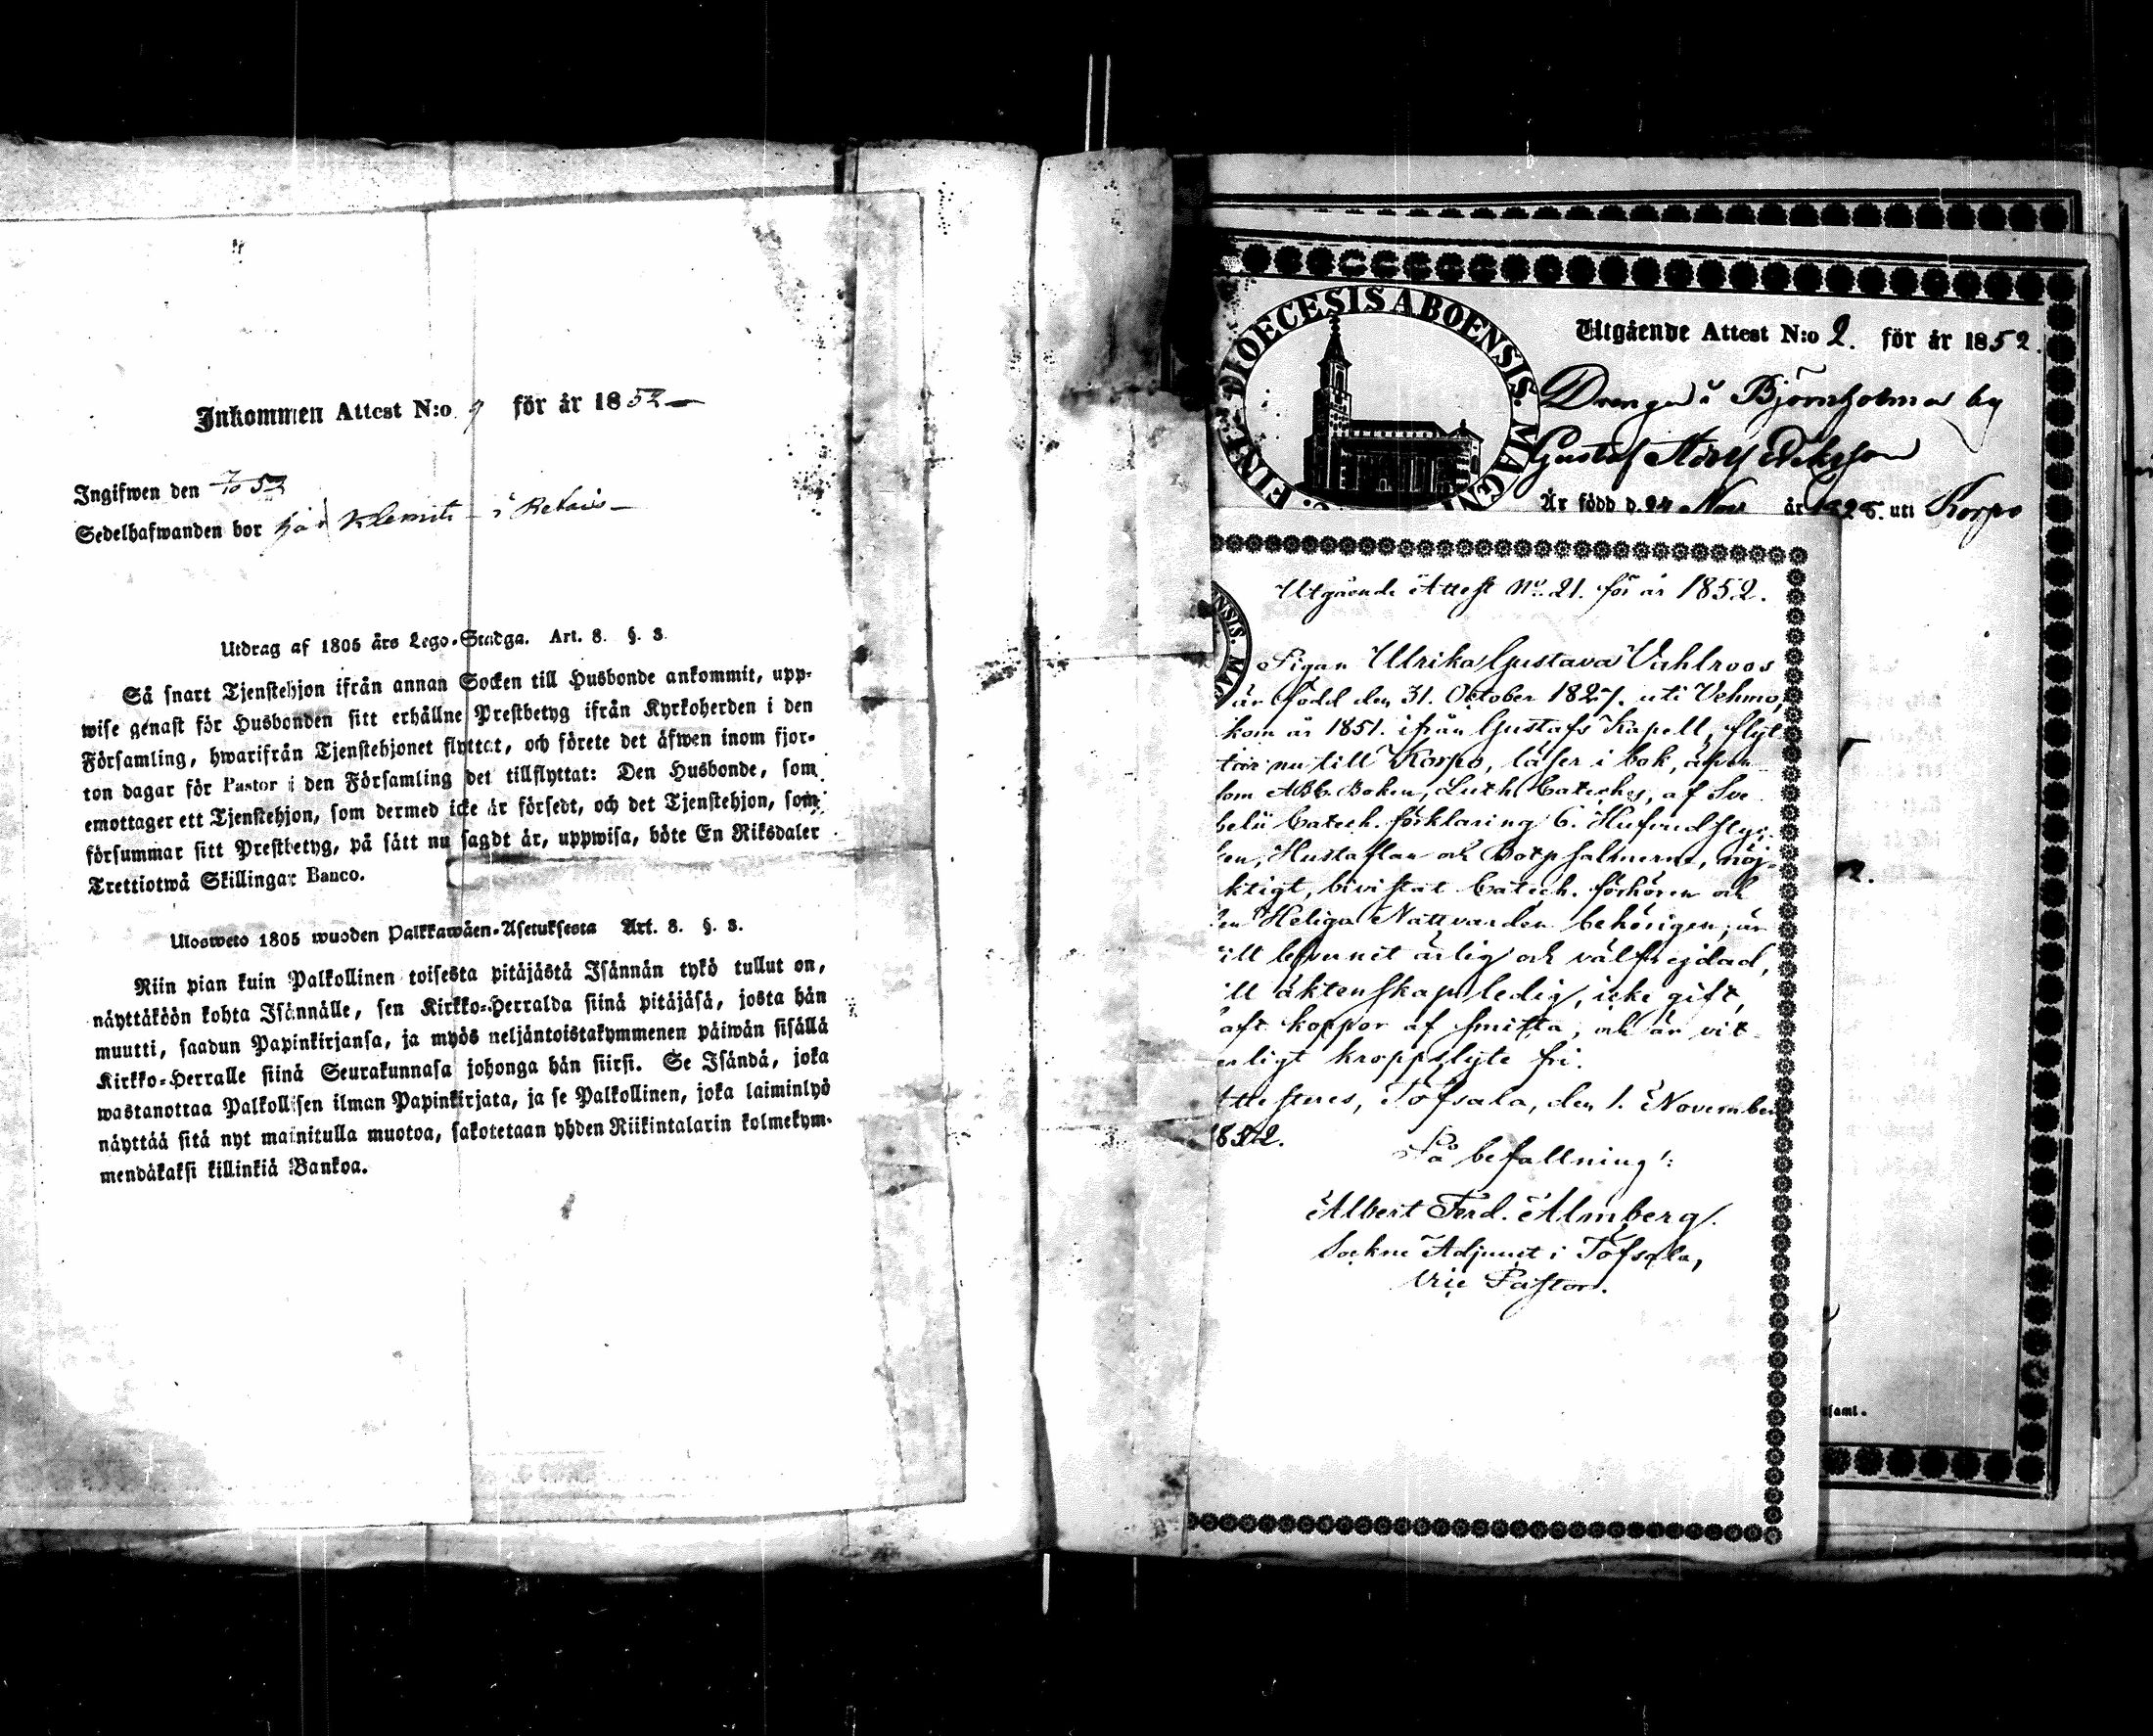 Inkommen Attest N:o 9 för år 1852
Ingifwen den 7/10 52
Sedelhafwanden bor hos Klemets i Retais
Utdrag af 1805 års Lego-Stadga. Art. 8. §. 3.
Så snart Tjenstehjon ifrån annan Socken till Husbonde ankommit, upp-
wise genast för Husbonden sitt erhållne Prestbetyg ifrån Kyrkoherden i den
Församling, hwarifrån Tjenstehjonet flyttat, och förete det äfwen inom fjor-
ton dagar för Pastor i den Församling det tillflyttat: Den Husbonde, som
emottager ett Tjenstehjon, som dermed icke är försedt, och det Tjenstehjon, som
försummar sitt Prestbetyg, på sätt nu sagdt är, uppwisa, böte En Riksdaler
Trettiotwå Skillingar Banco.
Ulosweto 1805 wuoden Palkkawäen-Asetuksesta Art. 8. §. 3.
Niin pian kuin Palkollinen toisesta pitäjästä Isännän tykö tullut on,
näyttäköön kohta Isännälle, sen Kirkko-Herralda siinä pitäjäsä, josta hän
muutti, saadun Papinkirjansa, ja myös neljäntoistakymmenen päiwän sisällä
Kirkko-Herralle siinä Seurakunnasa johonga hän siirsi. Se Isändä, joka
wastanottaa Palkollisen ilman Papinkirjata, ja se Palkollinen, joka laiminlyö
näyttää sitä nyt mainitulla muotoa, sakotetaan yhden Riikintalarin kolmekym-
mendäkaksi killinkiä Bankoa.
DIOECESIS ABOENSIS. MAGN
FINL
Utgående Attest N:o 2. för år 1852.
Drengen i Björnholma by
Gustaf Adolf Eriksson
Är född d. 24 Nov år 1825. uti Korpo
ENSIS. MAG
Utgående Attest No. 21. för år 1852.
Pigan Ulrika Gustava Vahlroos
är född den 31. October 1827. uti Vehmo,
kom år 1851. ifrån Gustafs Kapell, flyt
tar nu till Korpo, läser i bok, äfven
som ABC Boken, Luth. Cateches, af Sve
belii Catech. förklaring 6. Hufvudstyc
ken, Hustaflan och Botpsalmerne, nöj-
aktigt, bivistat Catech. förhören och
den Heliga Nattvarden behörigen, är
till lefvernet ärlig och välfrejdad,
till äktenskap ledig, icke gift,
haft koppor af smitta, och är vit-
erligt kroppslyte fri.
Attesteres, Töfsala, den 1. November
1852.
På befallning:
Albert Ferd. Almberg.
Sockne Adjunct i Töfsala,
Vice Pastor.
saml.